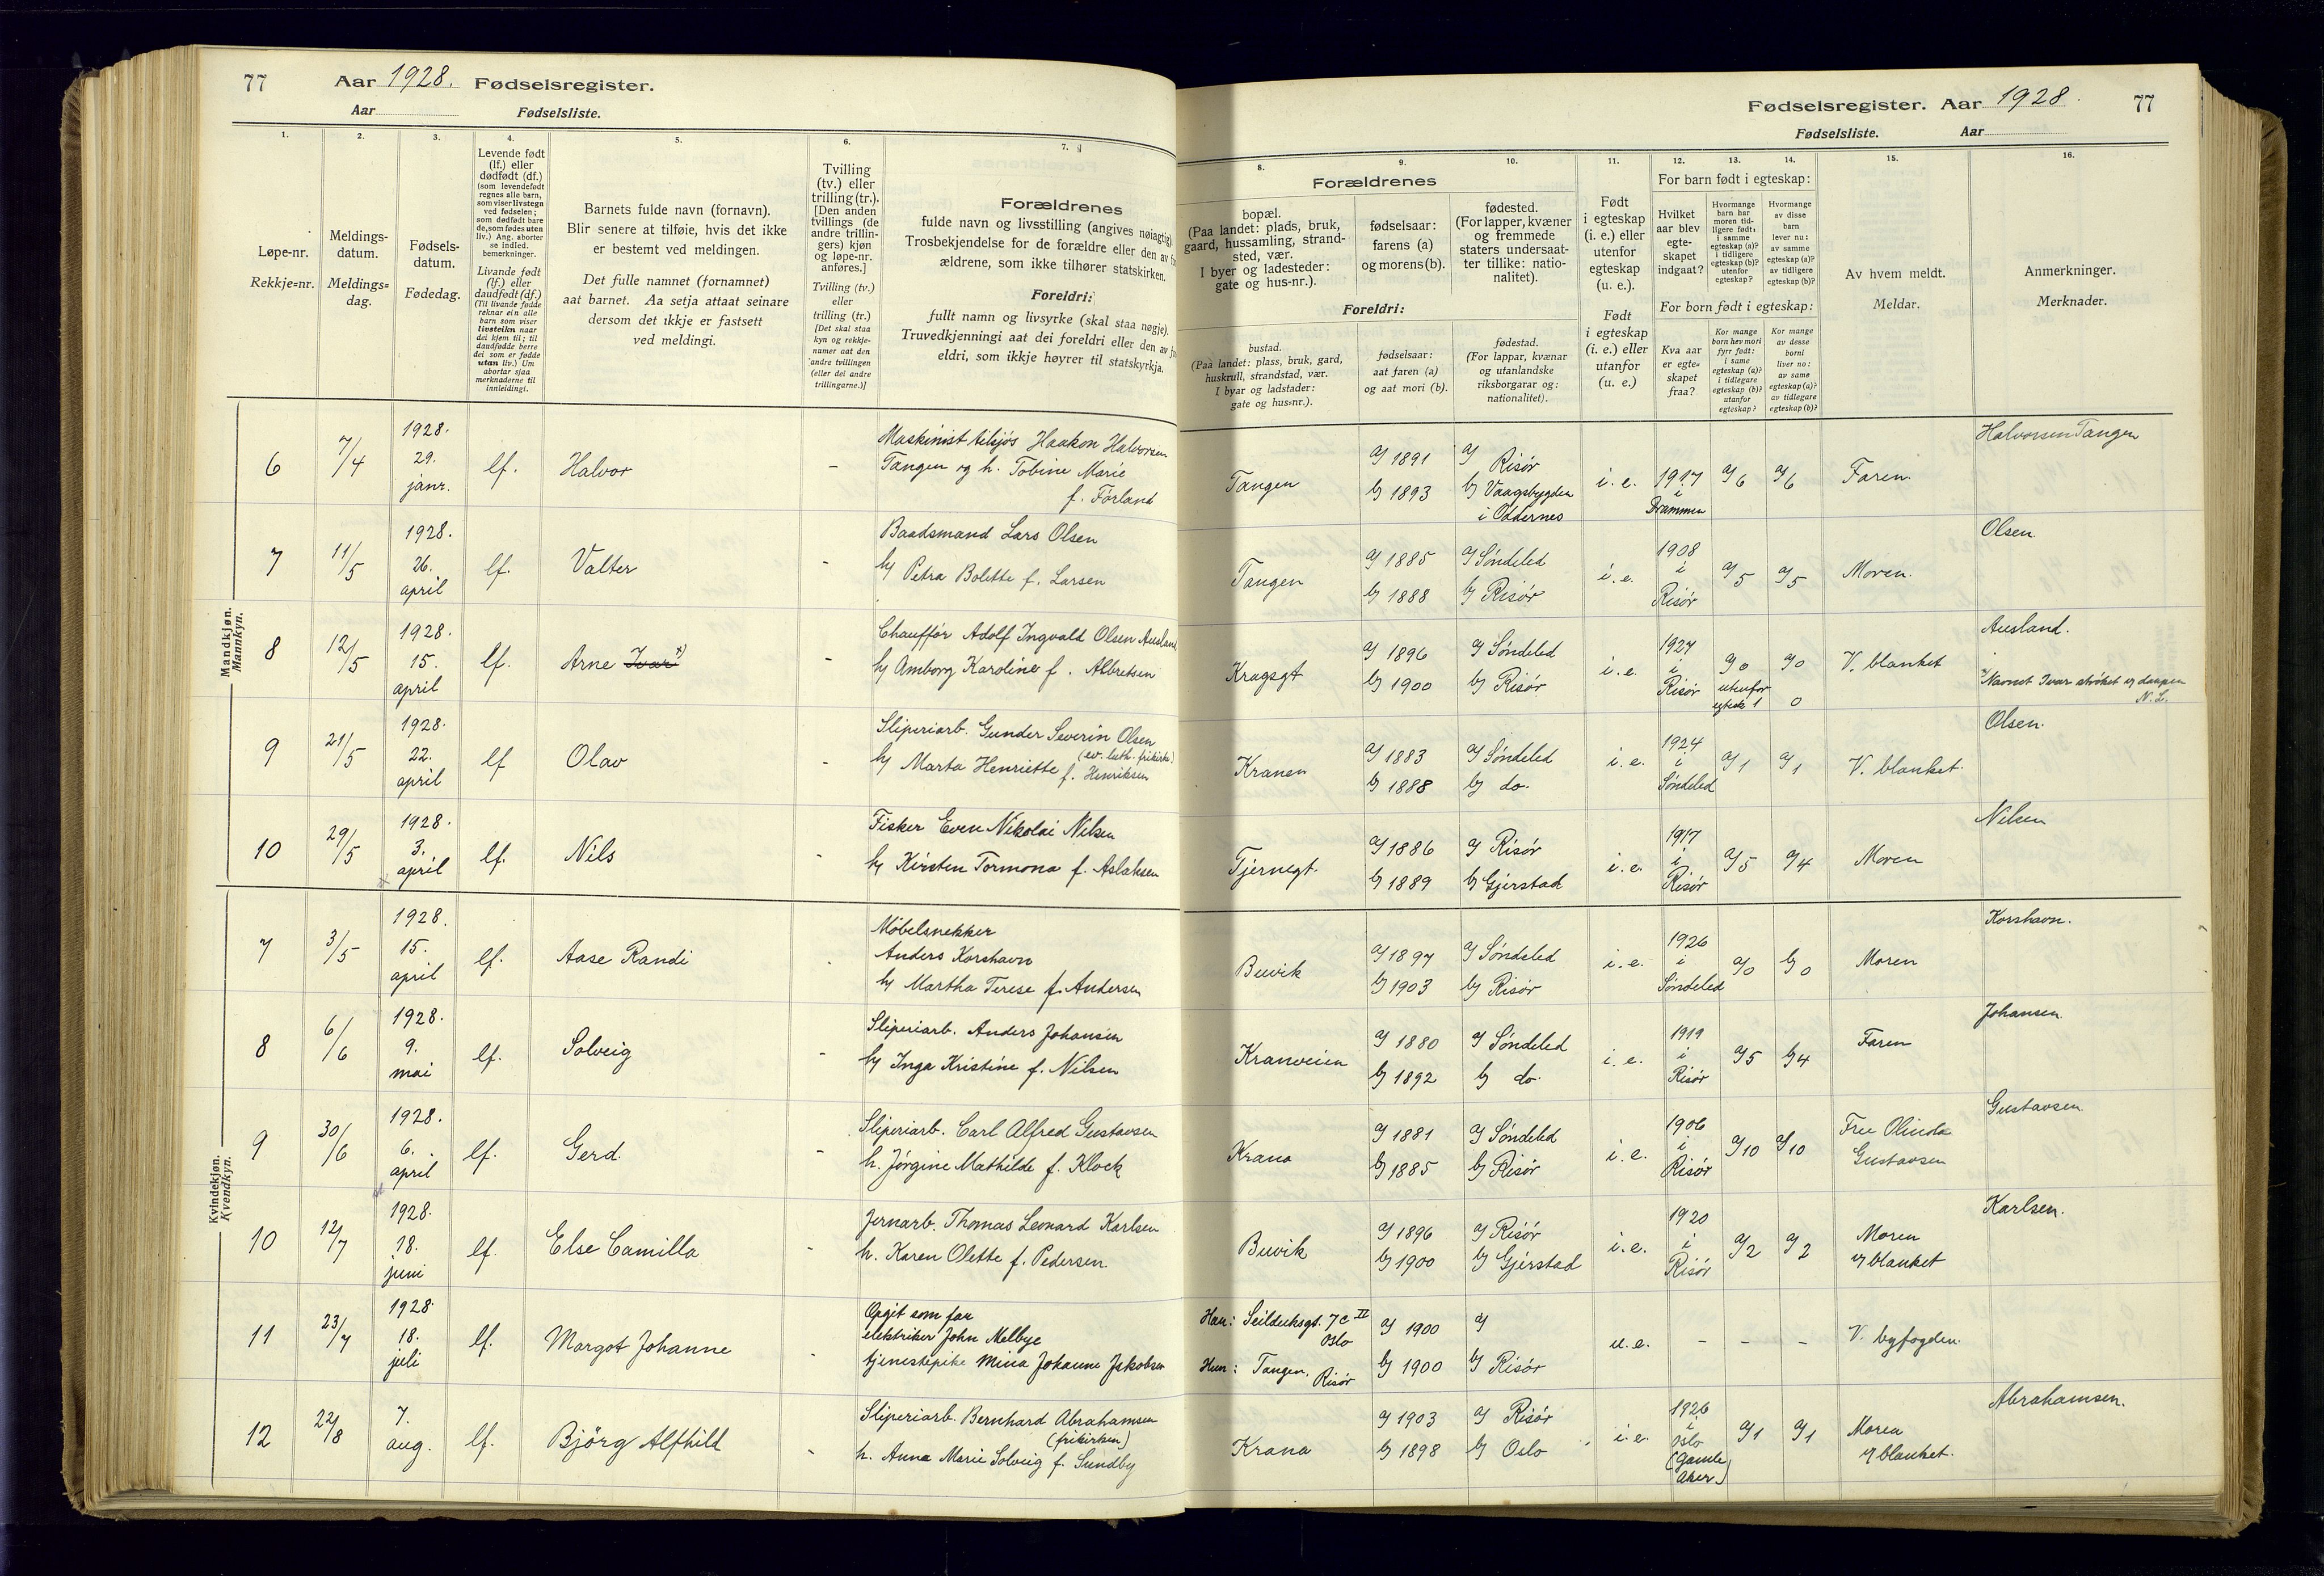 77 Aar 1928. Fødselsregister.
Aar Fødselsliste.
1. 2. 3. 4. 5. 6. 7.
Løpe-nr.
Rekkje-nr.
Meldings-
datum.
Meldings-
dag.
Fødsels-
datum.
Fødedag.
Levende født
(lf.) eller
dødfødt (df.)
(som levendefødt
regnes alle barn,
som viser livstegn
ved fødselen;
som dødfødt bare
de, som fødes uten
liv.) Ang. aborter
se indled.
bemerkninger.
Livande født
(lf.) eller
daudfødt (df.)
(Til livande fødde
reknar ein alle
barn som viser
livsteikn naar
dei kjem til; til
daudfødde berre
dei som er fødde
utan liv.) Um
abortar sjaa
merknaderne til
innleidingi.
Barnets fulde navn (fornavn).
Blir senere at tilføie, hvis det ikke
er bestemt ved meldingen.
Det fulle namnet (fornamnet)
aat barnet. Aa setja attaat seinare
dersom det ikkje er fastsett
ved meldingi.
Tvilling
(tv.) eller
trilling (tr.).
[Den anden
tvillings (de
andre trillin-
gers) kjøn
og løpe-nr.
anføres.]
Tvilling (tv.)
eller
trilling (tr.)
[Det skal staa
kyn og rekkje-
numer aat den
andre tvillingen
(eller dei andre
trillingarne.)]
Forældrenes
fulde navn og livsstilling (angives nøiagtig).
Trosbekjendelse for de forældre eller den av for-
ældrene, som ikke tilhører statskirken.
Foreldri:
fullt namn og livsyrke (skal staa nøgje).
Truvedkjenningi aat dei foreldri eller den av for-
eldri, som ikkje høyrer til statskyrkja.
Mandkjøn.
Mannkyn.
6 7/4 1928. 29. janr. lf. Halvor -
Maskinist tilsjøs Haakon Halvorsen
Tangen og h. Tobine Marie
f. Förland
7 11/5 1928. 26. april lf. Valter -
Baadsmand Lars Olsen
h/ Petra Bolette f. Larsen
8 12/5 1928. 15. april lf. Arne Ivar x) -
Chauffør Adolf Ingvald Olsen Ausland
h/ Amborg Karoline f. Albretsen
9 21/5 1928. 22. april lf Olav -
Sliperiarb. Gunder Severin Olsen
(ev. luth. frikirke)
h/ Marta Henriette f. Henriksen
10 29/5 1928. 3. april lf. Nils -
Fisker Even Nikolai Nilsen
h/ Kirsten Tormona f. Aslaksen
Kvindekjøn.
Kvendkyn.
7 3/5 1928. 15. april lf. Aase Randi
Møbelsnekker
Anders Korshavn
h/ Martha Terese f. Andersen
8 6/6 1928. 9. mai lf. Solveig -
Sliperiarb. Anders Johansen
h/ Inga Kristine f. Nilsen
9 30/6 1928. 6. april lf. Gerd. -
Sliperiarb. Carl Alfred Gustavsen
h. Jørgine Mathilde f. Klock
10 12/7 1928. 18. juni lf. Else Camilla -
Jernarb. Thomas Leonard Karlsen
h. Karen Olette f. Pedersen
11 23/7 1928. 18. juli lf. Margot Johanne -
Opgit som far
elektriker John Melbye
tjenestepike Mina Johanne Jakobsen
12 22/8 7. aug. lf. Björg Alfhild -
Sliperiarb. Bernhard Abrahamsen
(frikirken)
h. Anna Marie Solveig f. Sundby
Fødselsregister. Aar 1928. 77
Fødselsliste. Aar
8. 9. 10. 11. 12. 13. 14. 15. 16.
Forældrenes
bopæl.
(Paa landet: plads, bruk,
gaard, hussamling, strand-
sted, vær.
I byer og ladesteder:
gate og hus-nr.).
fødselsaar:
farens (a)
og morens (b).
fødested.
(For lapper, kvæner
og fremmede
staters undersaat-
ter tillike: natio-
nalitet).
Foreldri:
bustad.
(Paa landet: plass, bruk, gard,
huskrull, strandstad, vær.
I byar og ladstader:
gate og hus-nr.).
fødselsaar:
aat faren (a)
og aat mori (b).
fødestad.
(For lappar, kvænar
og utanlandske
riksborgarar og:
nationalitet).
Født
i egteskap
(i. e.) eller
utenfor
egteskap
(u. e.).
Født
i egteskap
(i. e.) eller
utanfor
(u. e.)
For barn født i egteskap:
Hvilket
aar blev
egte-
skapet
indgaat?
Hvormange
barn har
moren tid-
ligere født:
i samme
egteskap (a)?
i tidligere
egteskap (b)?
utenfor
egteskap?
Hvormange
av disse
barn
lever nu:
av samme
egteskap (a)?
av tidligere
egteskap (b)?
For born født i egteskap:
Kva aar
er egte-
skapet
fraa?
Kor mange
born hev mori
fyrr født:
i same
egteskap (a)?
i tidlegare
egteskap (b)?
utanfor
egteskap?
Kor mange
av desse
borni
liver no:
av same
egteskap (a)?
av tidlegare
egteskap (b)?
Av hvem meldt.
Meldar.
Anmerkninger.
Merknader.
Tangen a/ 1891 b/ 1893 a/ Risør b/ Vaagsbygden i Oddernes i. e. 1917 i Drammen a/6 a/6 Faren. Halvorsen Tangen
Tangen a/ 1885 b/ 1888 a/ Søndeled b/ Risør i. e. 1908 i Risør a/5 a/5 Moren. Olsen.
Kragsgt a/ 1896 b/ 1900 a/ Søndeled b/ Risør i. e. 1927 i Risør a/0 utenfor egtesk 1 a/0 0 V. blanket Ausland.
x/ Navnet Ivar strøket v/ daapen
N. L.
Kranen a/ 1883 b/ 1888 a/ Søndeled b/ do. i. e. 1924 i Søndeled a/1 a/1 V. blanket. Olsen.
Tjernsgt. a/ 1886 b/ 1889 a/ Risør b/ Gjerstad i. e. 1917 i Risør a/5 a/4 Moren Nilsen
Buvik a/ 1897 b/ 1903 a/ Søndeled b/ Risør i. e. 1926 i Søndeled a/0 b/0 Moren Korshavn.
Kranveien a/ 1880 b/ 1892 a/ Søndeled b/ do. i. e. 1919 i Risør a/5 b/4 Faren Johansen.
Krana a/ 1881 b/ 1885 a/ Søndeled b/ Risør i. e. 1906 i Risør a/10 a/10 Fru Olinda Gustavsen Gustavsen.
Buvik a/ 1896 b/ 1900 a/ Risør b/ Gjerstad i. e. 1920 i Risør a/2 a/2 Moren v/ blanket Karlsen.
Han: Seilduksgt. 7 c II Oslo a/ 1900 a/
Hun: Tangen, Risør b/ 1900 b/ Risør u. e. - - - V. byfogden.
Krana a/ 1903 b/ 1898 a/ Risør b/ Oslo i. e. 1926 i Oslo (Gamle Aker) a/1 a/1 Moren v/ blanket. Abrahamsen.